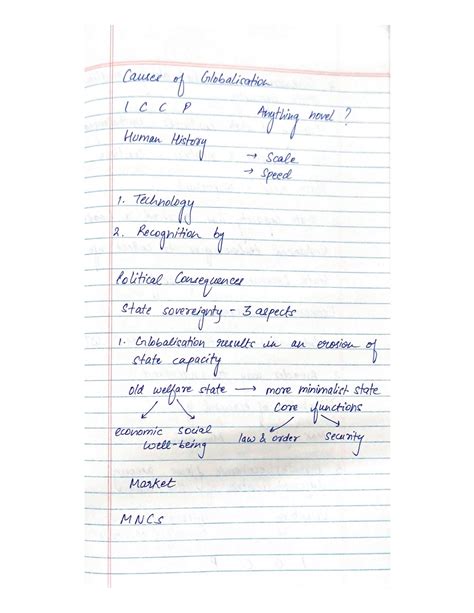 Causes of Globalisation
I C C P Anything novel ?
Human History
→ Scale
→ Speed
1. Technology
2. Recognition by
Political Consequences
State sovereignty - 3 aspects
1. Globalisation results in an erosion of
state capacity
old welfare state → more minimalist state
core functions
economic social
well-being law & order security
Market
MNCs